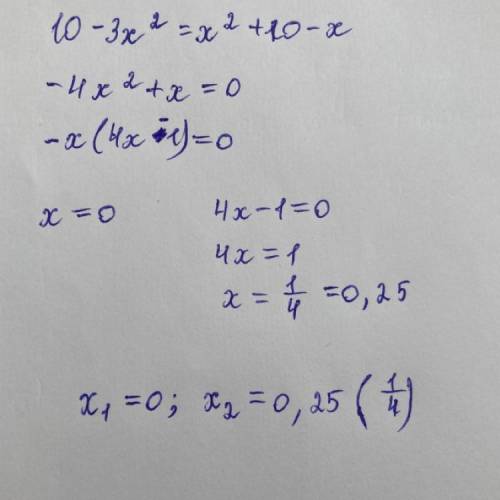 10 - 3x² = x² + 10 - x
-4x² + x = 0
-x(4x - 1) = 0
x = 0    4x - 1 = 0
4x = 1
x = 1/4 = 0,25
x₁ = 0; x₂ = 0,25 (1/4)